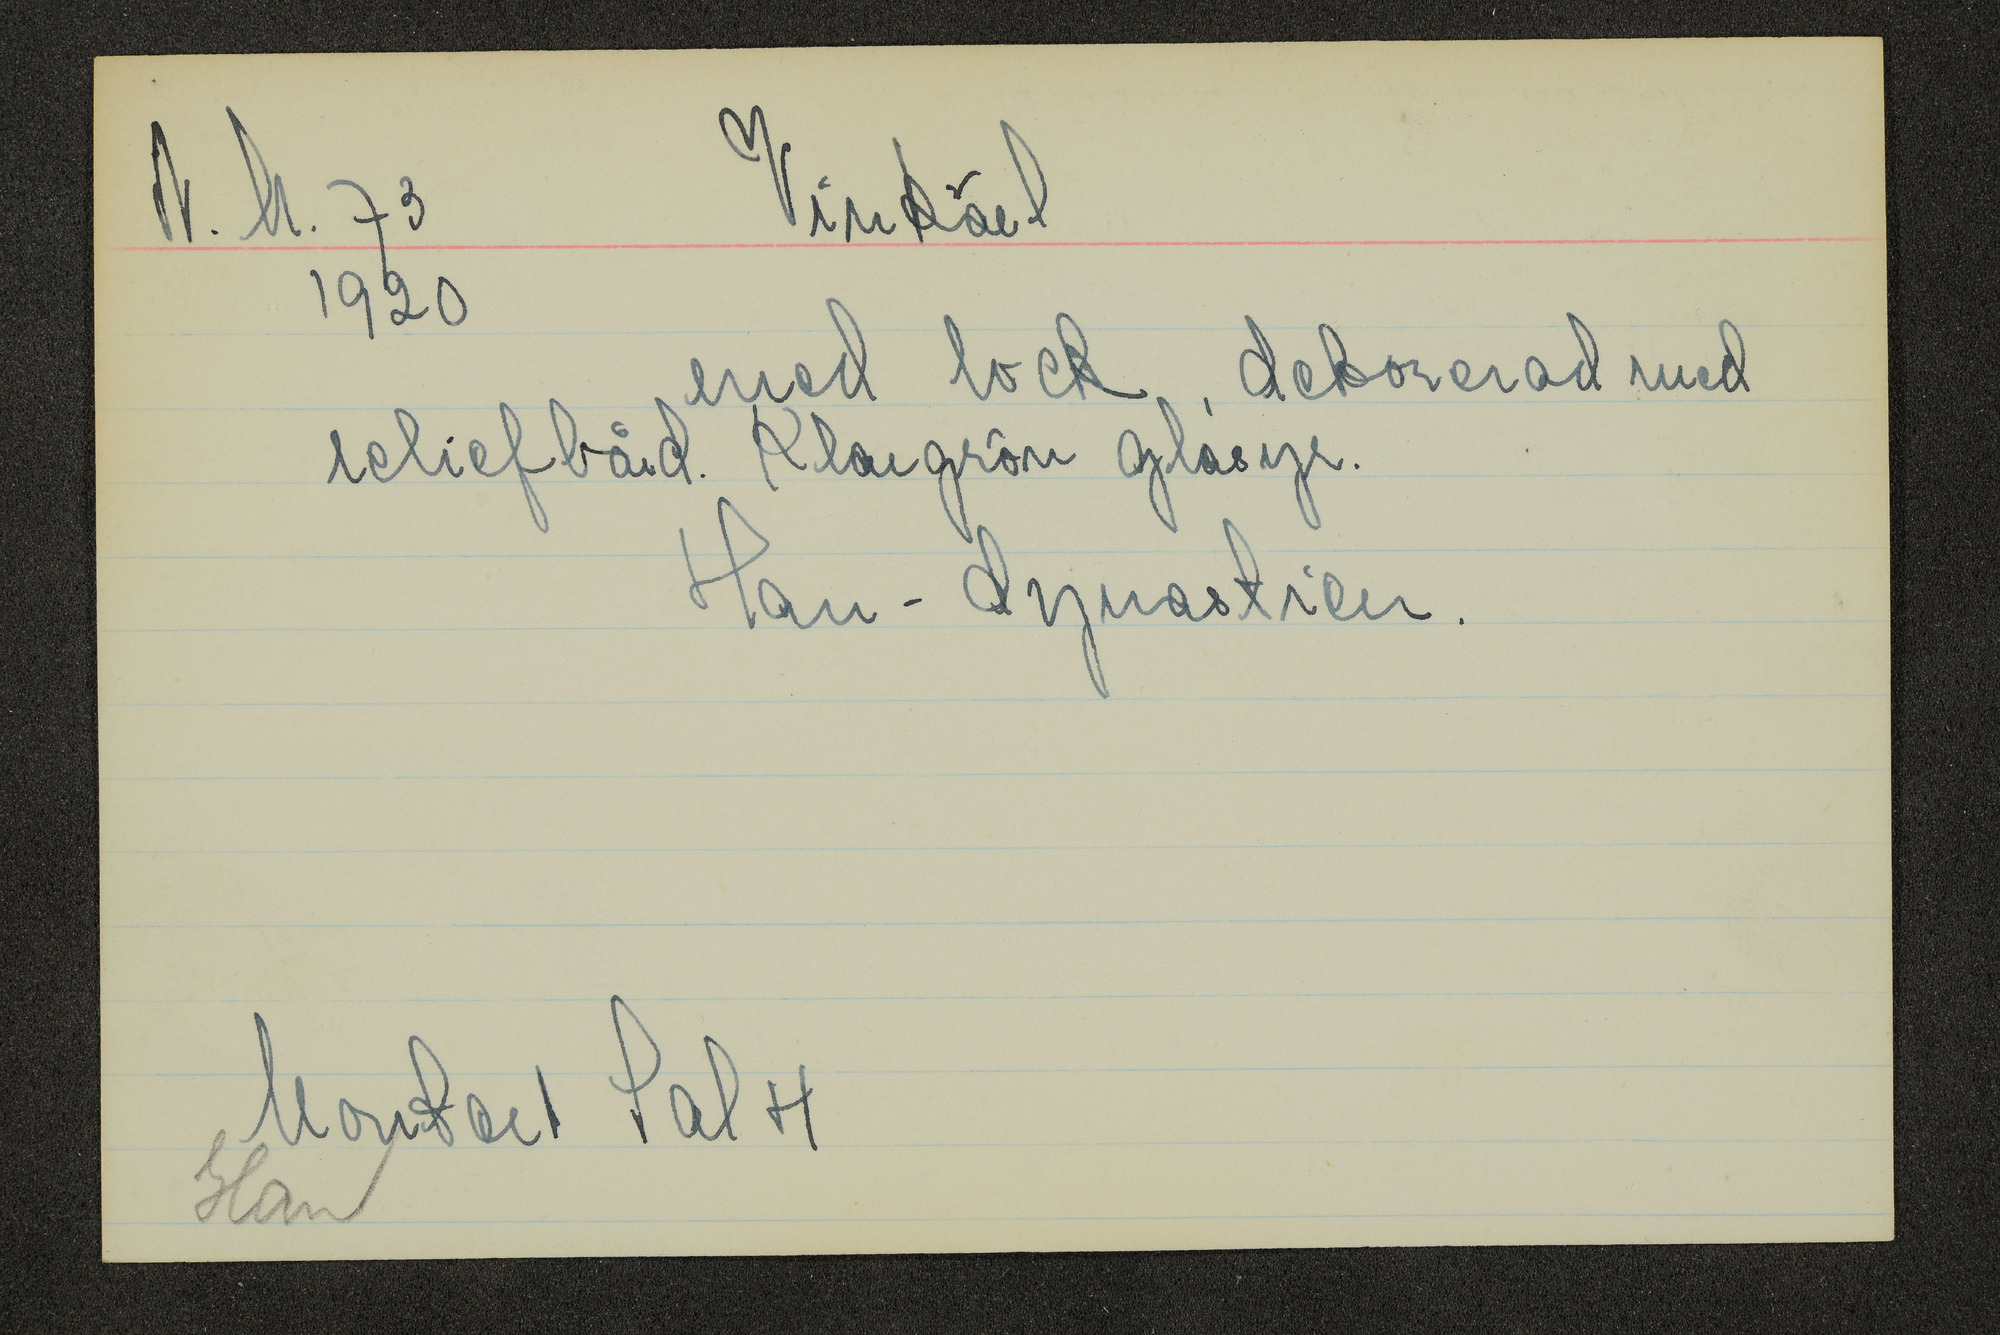 N. M. 73 Vinkärl
1920
med lock, dekorerad med
reliefbård. Klargrön glasyr.
Han-dynastien.
Montael Sal H
Han